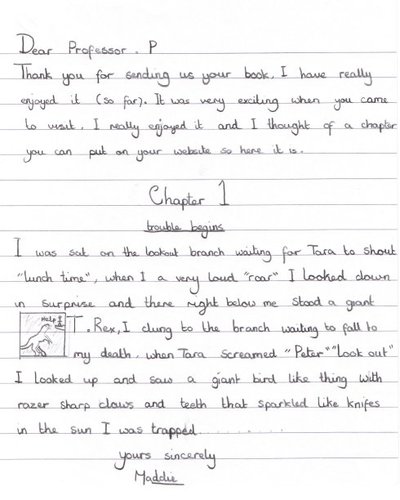 Dear Professor . P
Thank you for sending us your book, I have really
enjoyed it (so far). It was very exciting when you came
to visit. I really enjoyed it and I thought of a chapter
you can put on your website so here it is.
Chapter 1
trouble begins
I was sat on the lookout branch waiting for Tara to shout
"lunch time", when I a very loud "roar" I looked down
in surprise and there right below me stood a giant
Help
T. Rex, I clung to the branch waiting to fall to
my death, when Tara screamed "Peter" "look out"
I looked up and saw a giant bird like thing with
razer sharp claws and teeth that sparkled like knifes
in the sun I was trapped..........
yours sincerely
Maddie